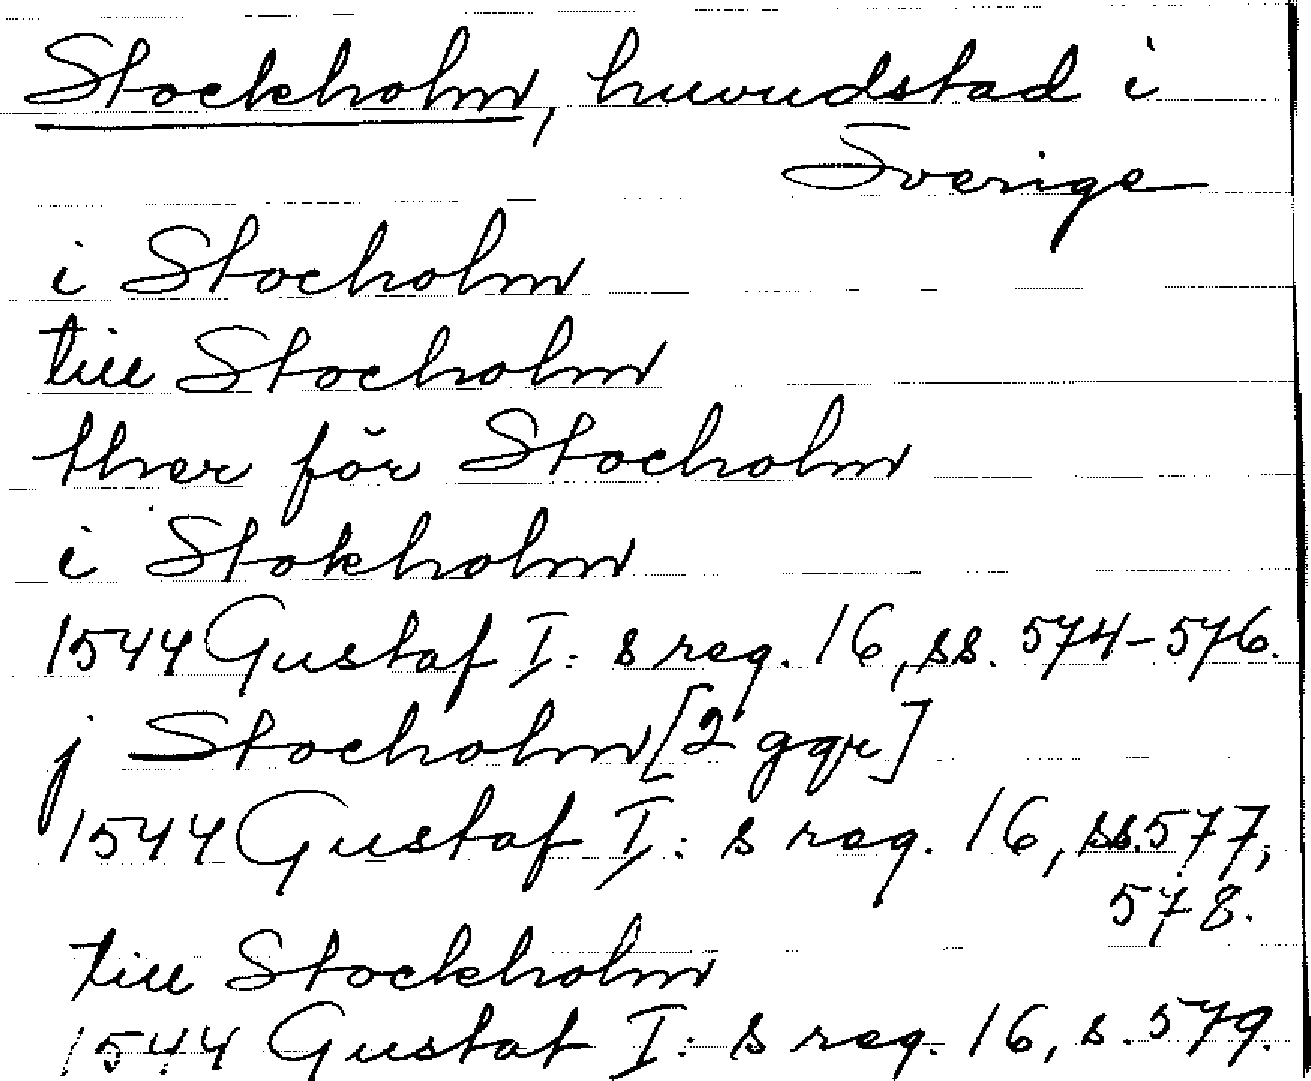 Stockholm, huvudstad i
Sverige
i Stocholm
till Stocholm
ther för Stocholm
i Stokholm
1544 Gustaf I:s reg. 16, ss. 574-576.
j Stocholm [2 ggr]
1544 Gustaf I:s reg. 16, ss. 577,
578.
till Stockholm
1544 Gustaf I:s reg. 16, s. 579.